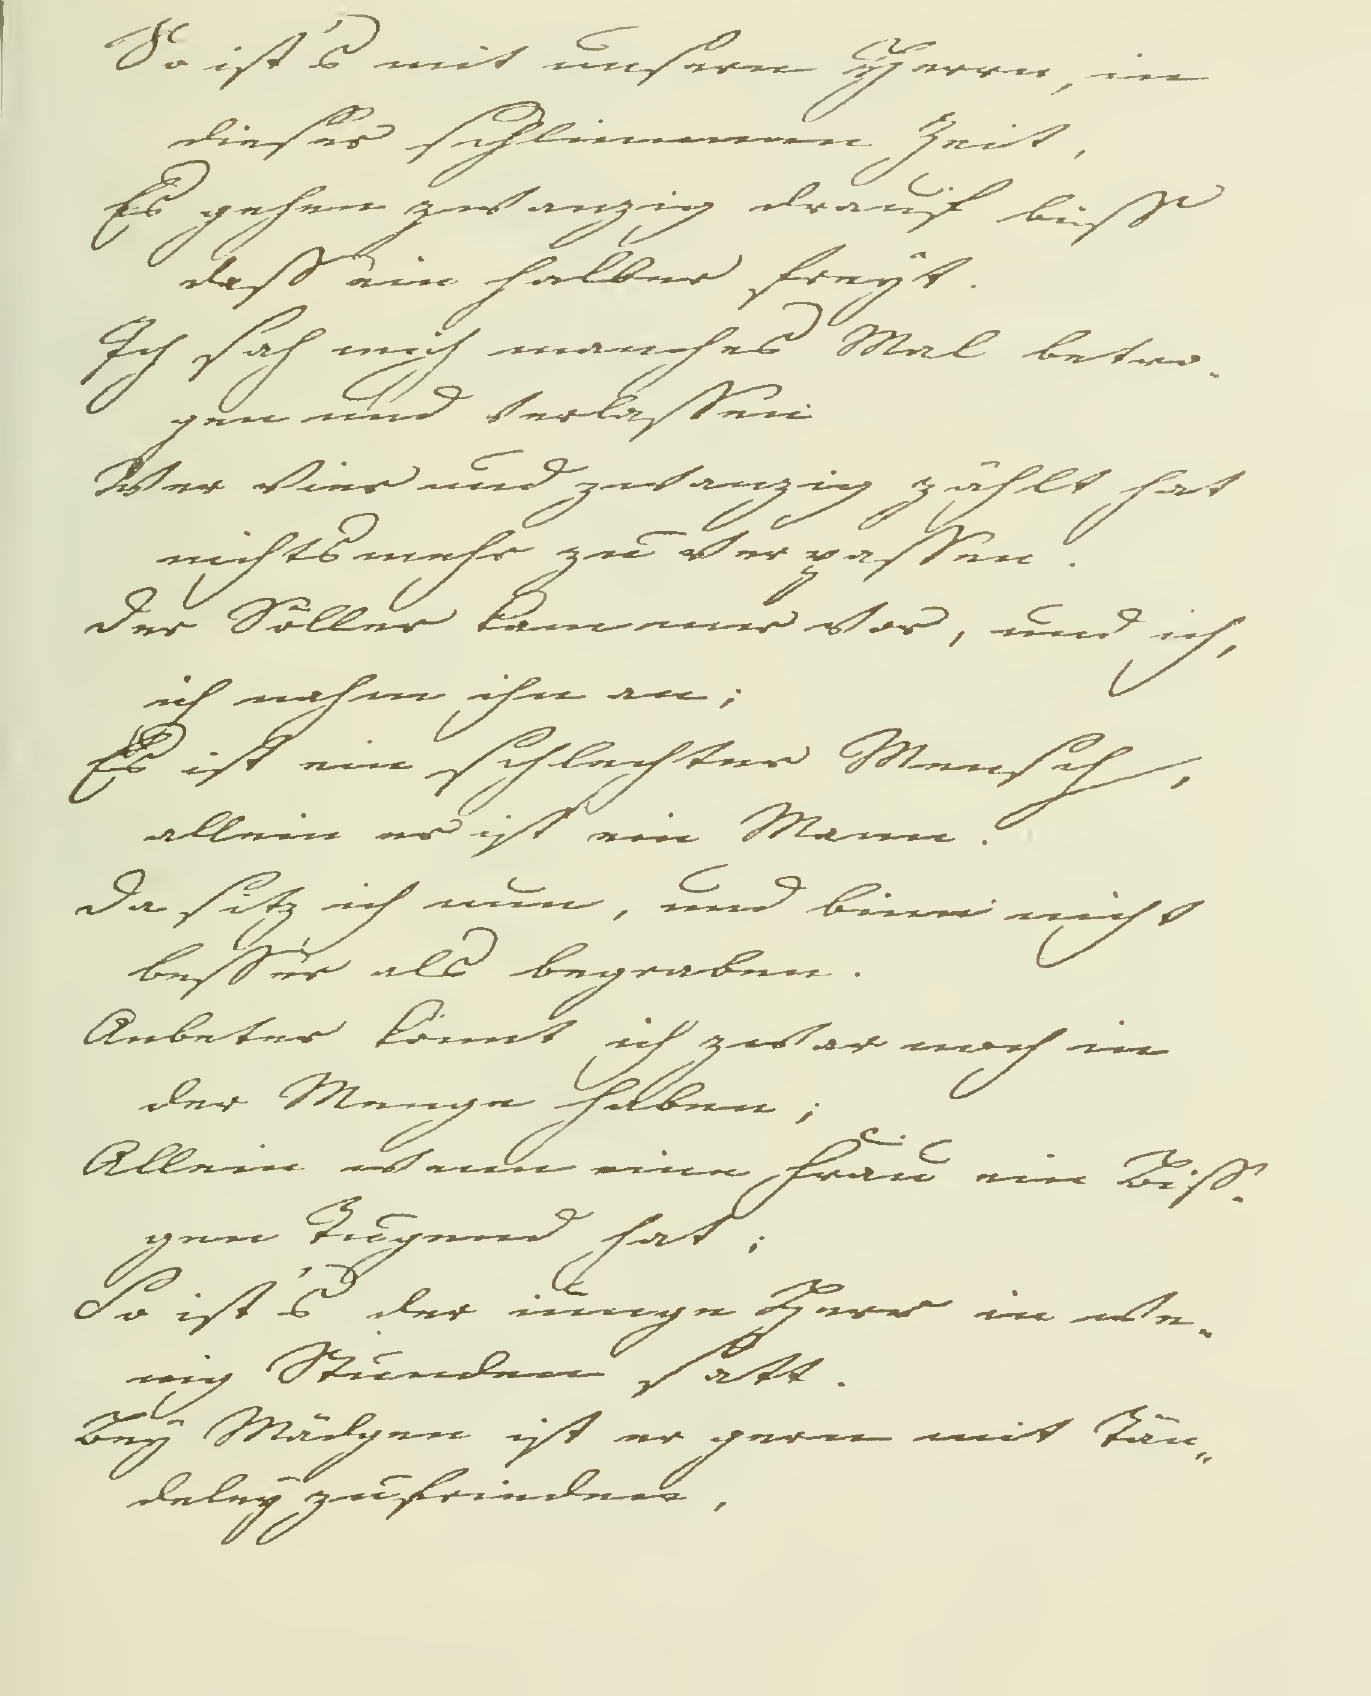 So ist's mit unsern Herrn, in
dieser schlimmen Zeit,
Es gehen zwanzig drauf biss
dass ein halber freyt.
Ich sah mich manches Mal betro-
gen und verlassen
Wer vier und zwanzig zählt hat
nichts mehr zu verpassen.
Der Söller kam mir vor, und ich,
ich nahm ihn an;
Es ist ein schlechter Mensch,
allein er ist ein Mann.
Da sitz ich nun, und binn nicht
besser als begraben.
Anbeter könnt ich zwar noch in
der Menge haben;
Allein wenn eine Frau ein Biss-
gen Tugend hat;
So ist's der iunge Herr in we-
nig Stunden satt.
Bey Mädgen ist er gern mit Tän-
deley zufrieden,